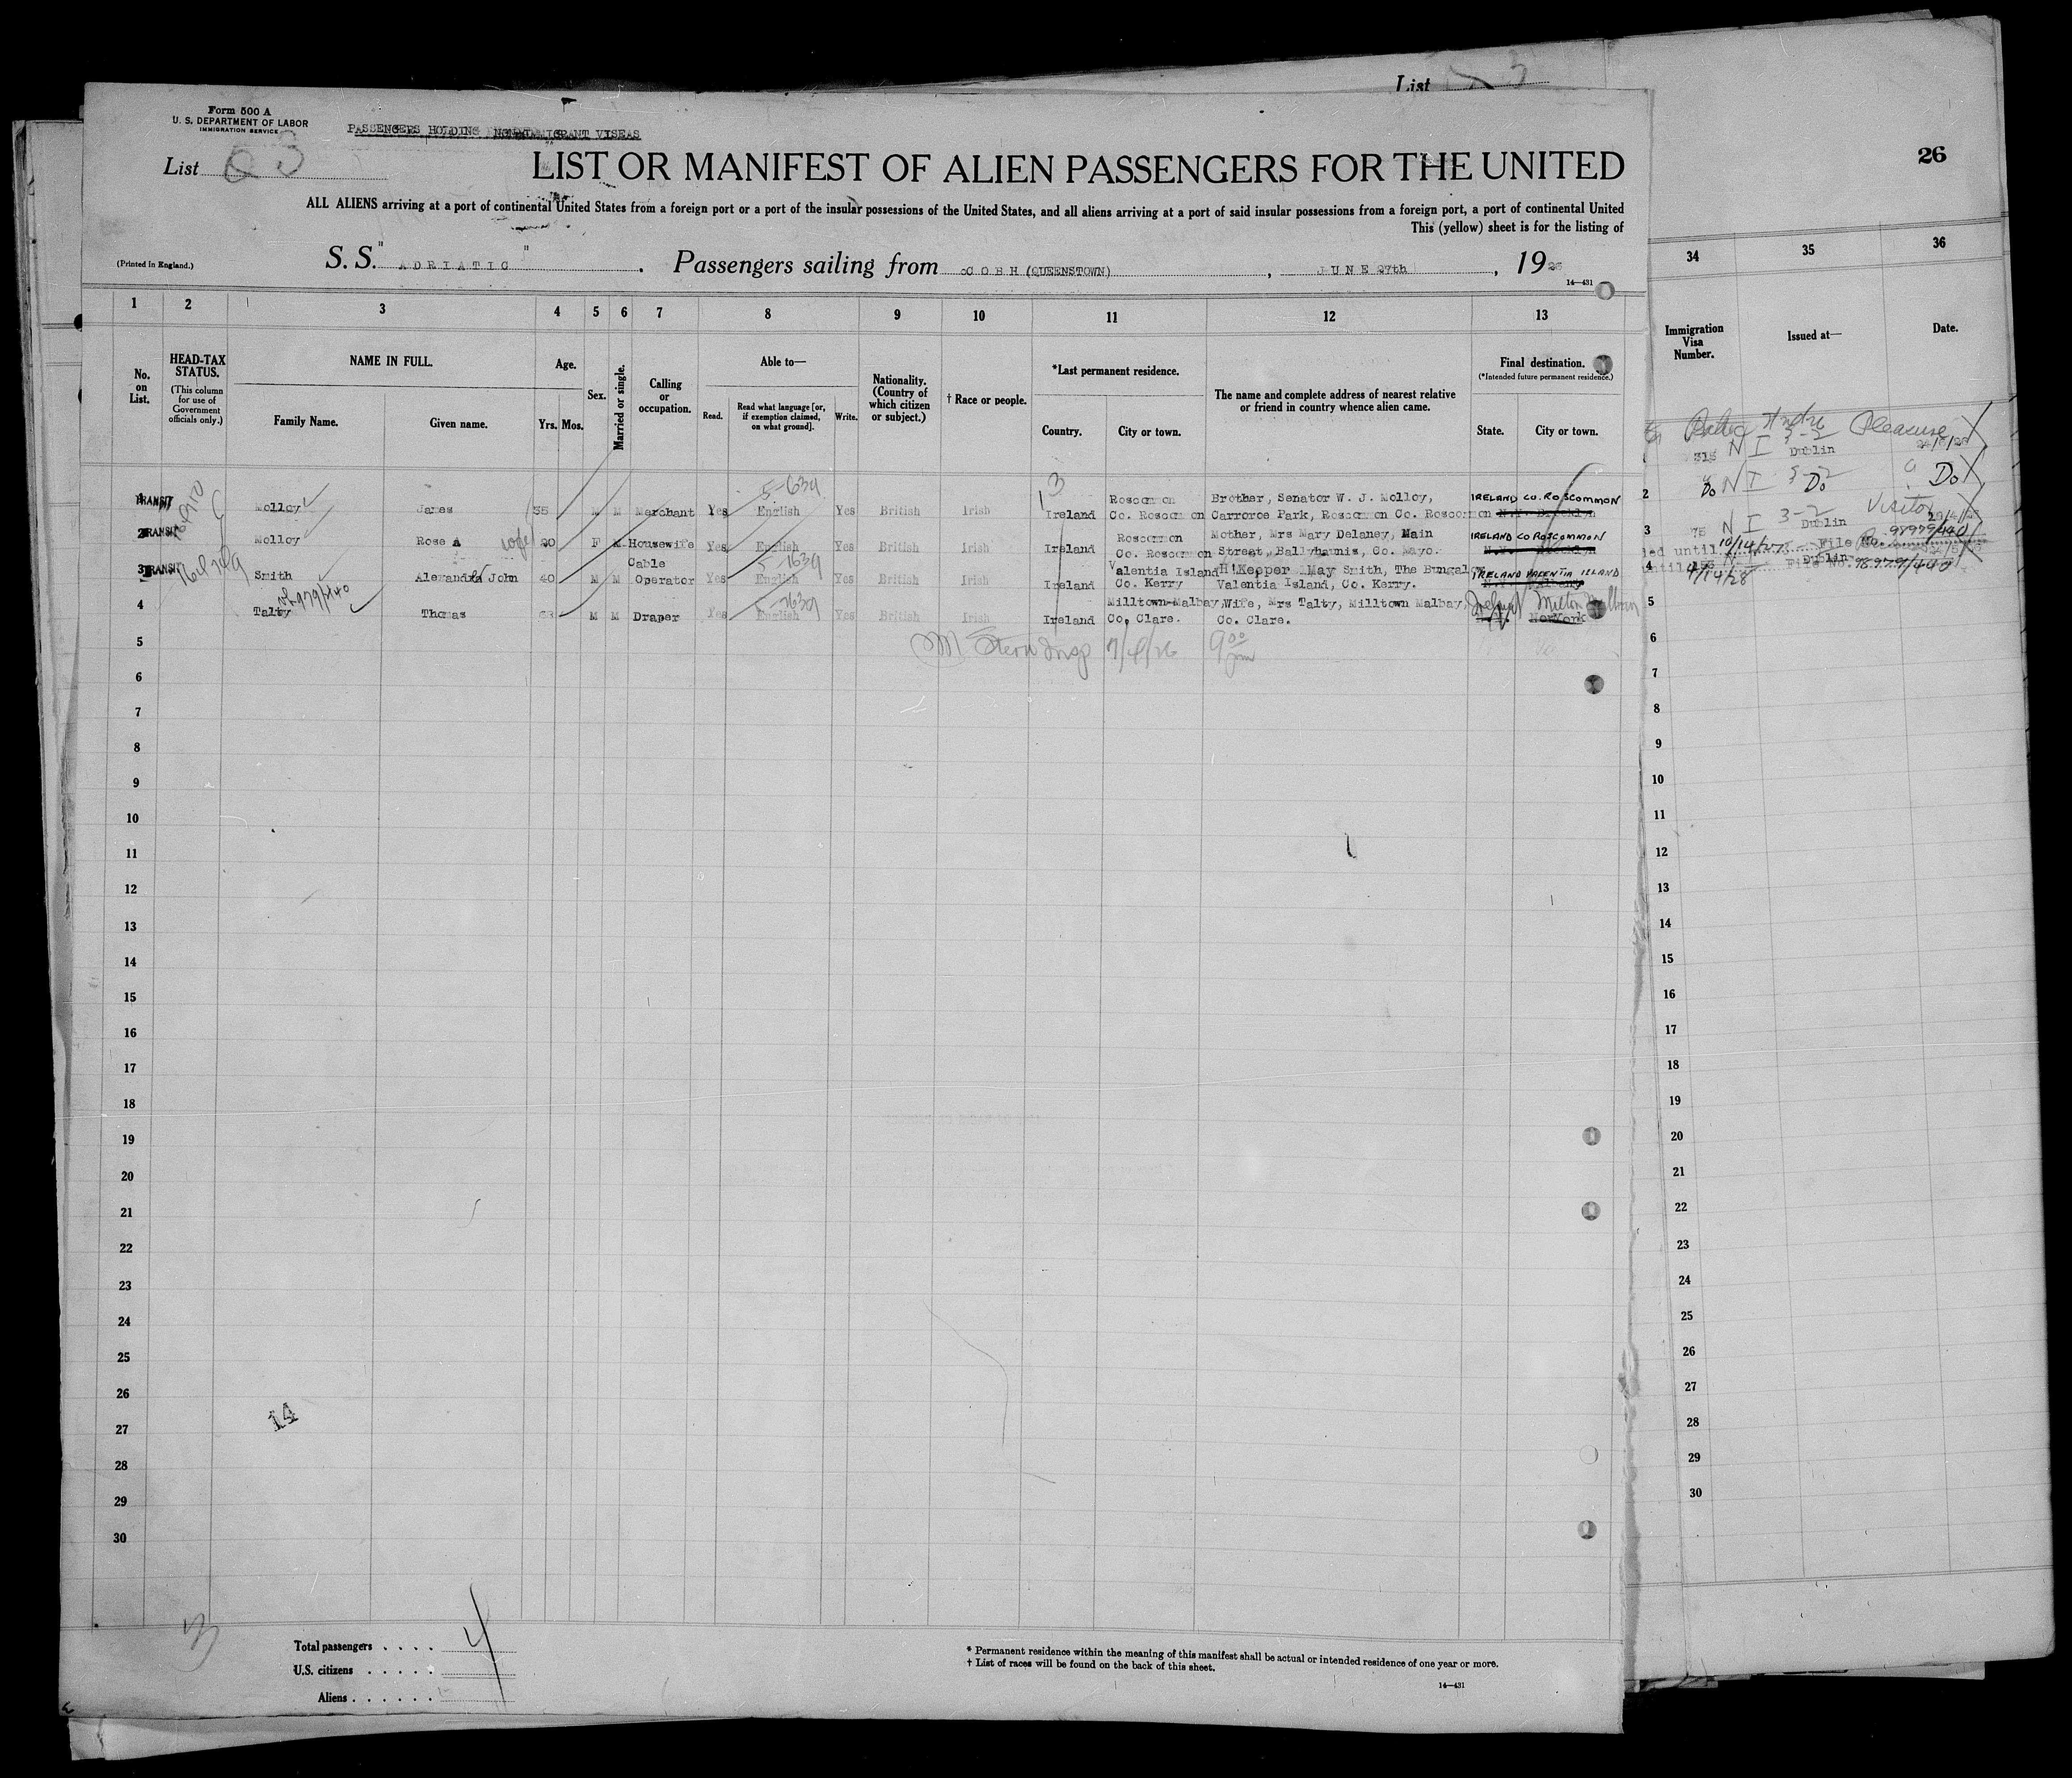 List
Form 500 A
U. S. DEPARTMENT OF LABOR
IMMIGRATION SERVICE
PASSENGERS HOLDING GRANT VISEAS
List 3
LIST OR MANIFEST OF ALIEN PASSENGERS FOR THE UNITED
26
ALL ALIENS arriving at a port of continental United States from a foreign port or a port of the insular possessions of the United States, and all aliens arriving at a port of said insular possessions from a foreign port, a port of continental United
This (yellow) sheet is for the listing of
(Printed in England.)
S. S. "ADRIATIC" Passengers sailing from COBH (QUEENSTOWN), JUNE 27th, 1926
14—431
1 2 3 4 5 6 7 8 9 10 11 12 13
34 35 36
No. on List.
HEAD-TAX STATUS.
(This column for use of Government officials only.)
NAME IN FULL.
Family Name. Given name.
Age.
Yrs. Mos.
Sex.
Married or single.
Calling or occupation.
Able to—
Read. Read what language [or, if exemption claimed, on what ground]. Write.
Nationality. (Country of which citizen or subject.)
† Race or people.
*Last permanent residence.
Country. City or town.
The name and complete address of nearest relative or friend in country whence alien came.
Final destination.
(*Intended future permanent residence.)
State. City or town.
Immigration Visa Number.
Issued at—
Date.
1 TRANSIT Molloy James 35 M M Merchant Yes English Yes British Irish Ireland Roscommon Co. Roscommon Brother, Senator W. J. Molloy, Carroroe Park, Roscommon Co. Roscommon IRELAND CO. ROSCOMMON N.Y. Brooklyn
2 TRANSIT Molloy Rose A wife 30 F M Housewife Yes English Yes British Irish Ireland Roscommon Co. Roscommon Mother, Mrs Mary Delaney, Main Street, Ballyhaunis, Co. Mayo. IRELAND CO ROSCOMMON
3 TRANSIT Smith Alexander John 40 M M Cable Operator Yes English Yes British Irish Ireland Valentia Island Co. Kerry H'Keeper May Smith, The Bungalow Valentia Island, Co. Kerry. IRELAND VALENTIA ISLAND
98979/440
4 Talty Thomas 63 M M Draper Yes English Yes British Irish Ireland Milltown-Malbay, Co. Clare. Wife, Mrs Talty, Milltown Malbay, Co. Clare. Ireland Milton Malbay N.Y. NewYork
M Stern Insp 7/4/26 9 00 pm
5
6
7
8
9
10
11
12
13
14
15
16
17
18
19
20
21
22
23
24
25
26
27
28
29
30
14
Pleasure
315 N I 3-2 Dublin
2 Do N I 3-2 Do Do
Visitor
3 75 N I 3-2 Dublin
until 10/14/27 File No. 98979/440
4 Dublin
until 4/14/28 File No. 98979/440
5
6
7
8
9
10
11
12
13
14
15
16
17
18
19
20
21
22
23
24
25
26
27
28
29
30
Total passengers . . . . 4
U.S. citizens . . . . .
Aliens . . . . . .
* Permanent residence within the meaning of this manifest shall be actual or intended residence of one year or more.
† List of races will be found on the back of this sheet.
14—431